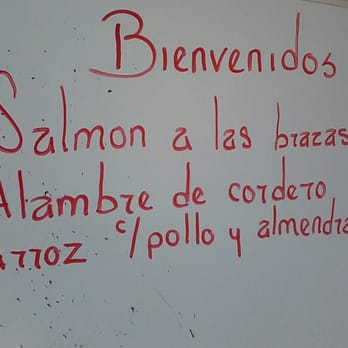 Bienvenidos
Salmon a las brazas
Alambre de cordero
Arroz c/pollo y almendra